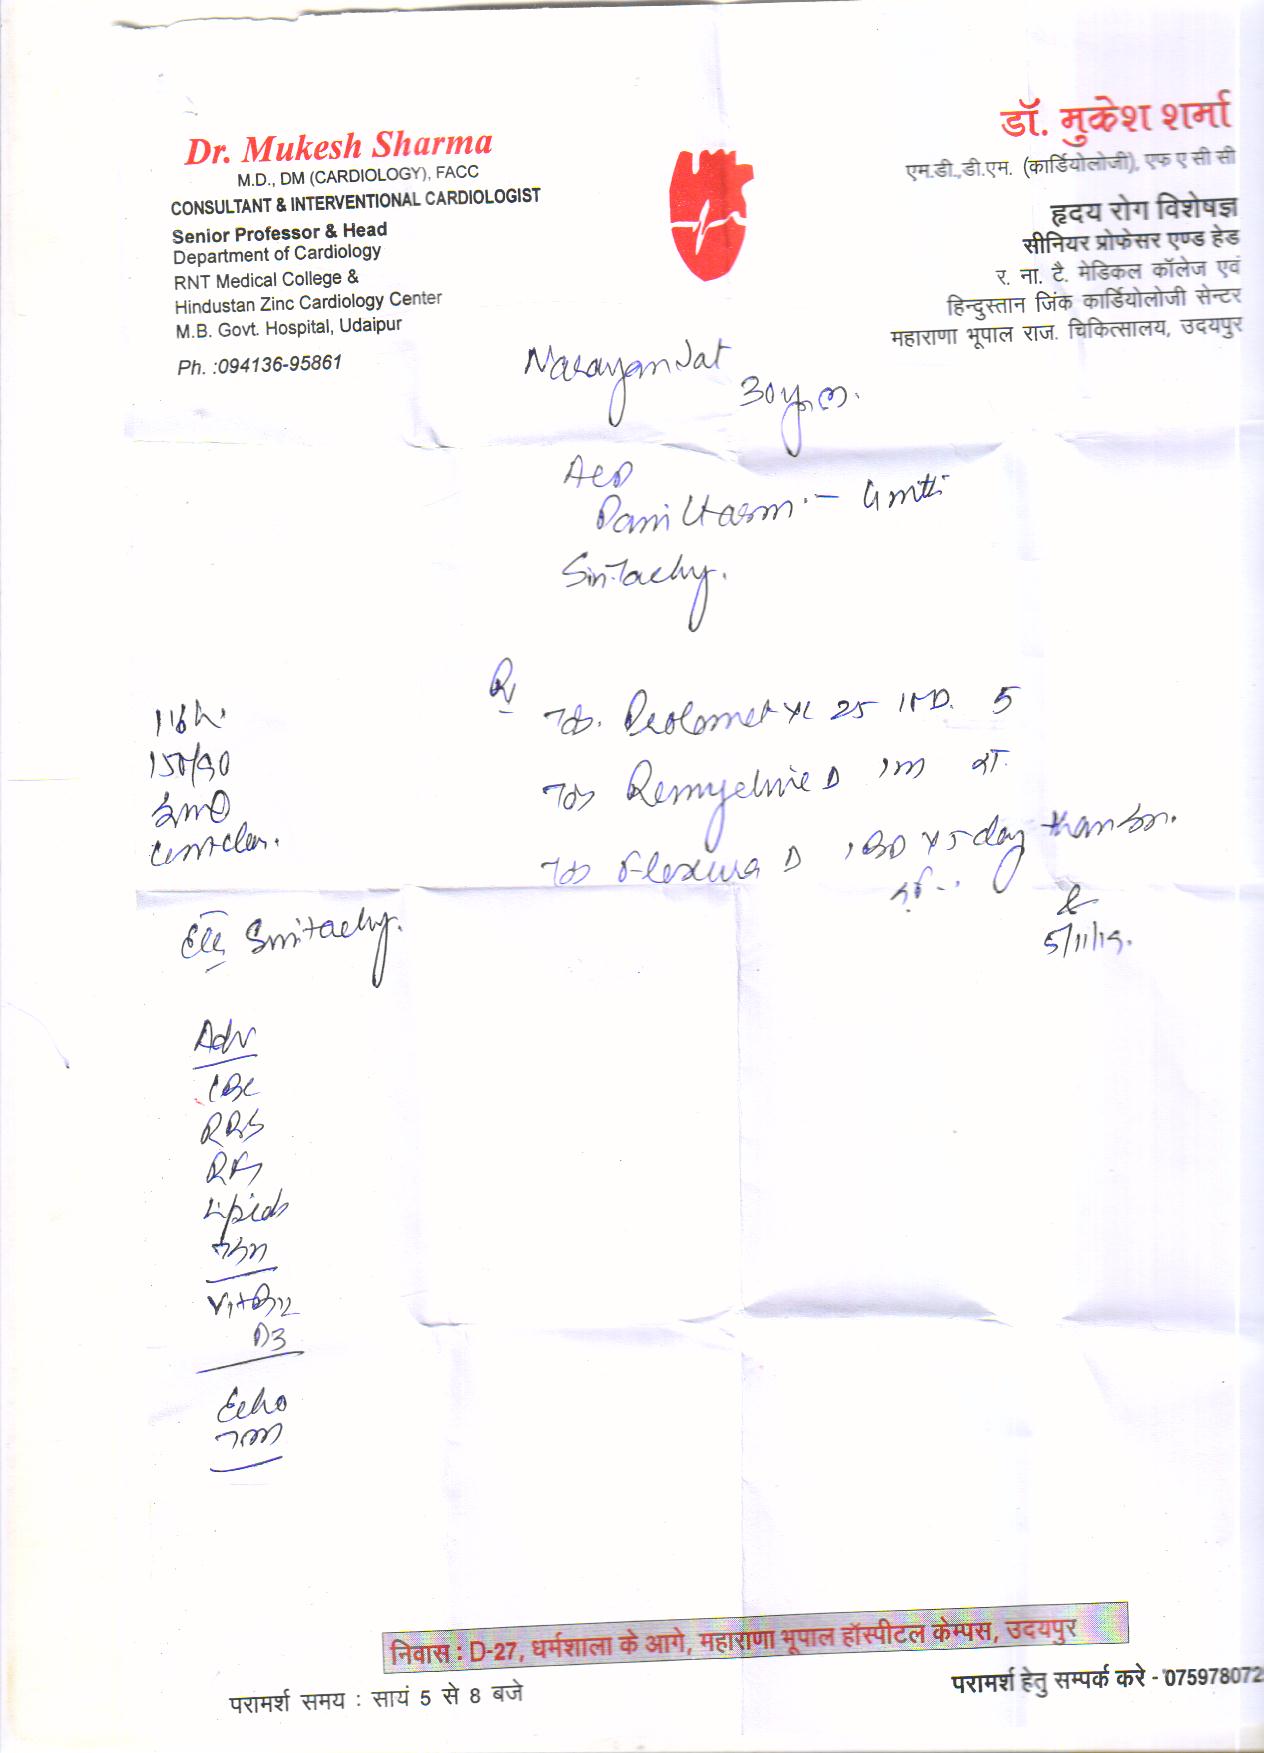 Dr. Mukesh Sharma
M.D., DM (CARDIOLOGY), FACC
CONSULTANT & INTERVENTIONAL CARDIOLOGIST
Senior Professor & Head
Department of Cardiology
RNT Medical College &
Hindustan Zinc Cardiology Center
M.B. Govt. Hospital, Udaipur
Ph. :094136-95861
डॉ. मुकेश शर्मा
एम.डी.,डी.एम. (कार्डियोलोजी), एफ ए सी सी
हृदय रोग विशेषज्ञ
सीनियर प्रोफेसर एण्ड हेड
र. ना. टै. मेडिकल कॉलेज एवं
हिन्दुस्तान जिंक कार्डियोलोजी सेन्टर
महाराणा भूपाल राज. चिकित्सालय, उदयपुर
Narayan Jat
30 y
Sin. Tachy.
150/90
Rx
Prolomet XL 25 5
D
D 5 day
5/11/19.
Sin tachy.
Adv
CBC
RBS
RFT
Lipids
Vit B12
D3
Echo
निवास : D-27, धर्मशाला के आगे, महाराणा भूपाल हॉस्पीटल केम्पस, उदयपुर
परामर्श समय : सायं 5 से 8 बजे
परामर्श हेतु सम्पर्क करे - 075978072